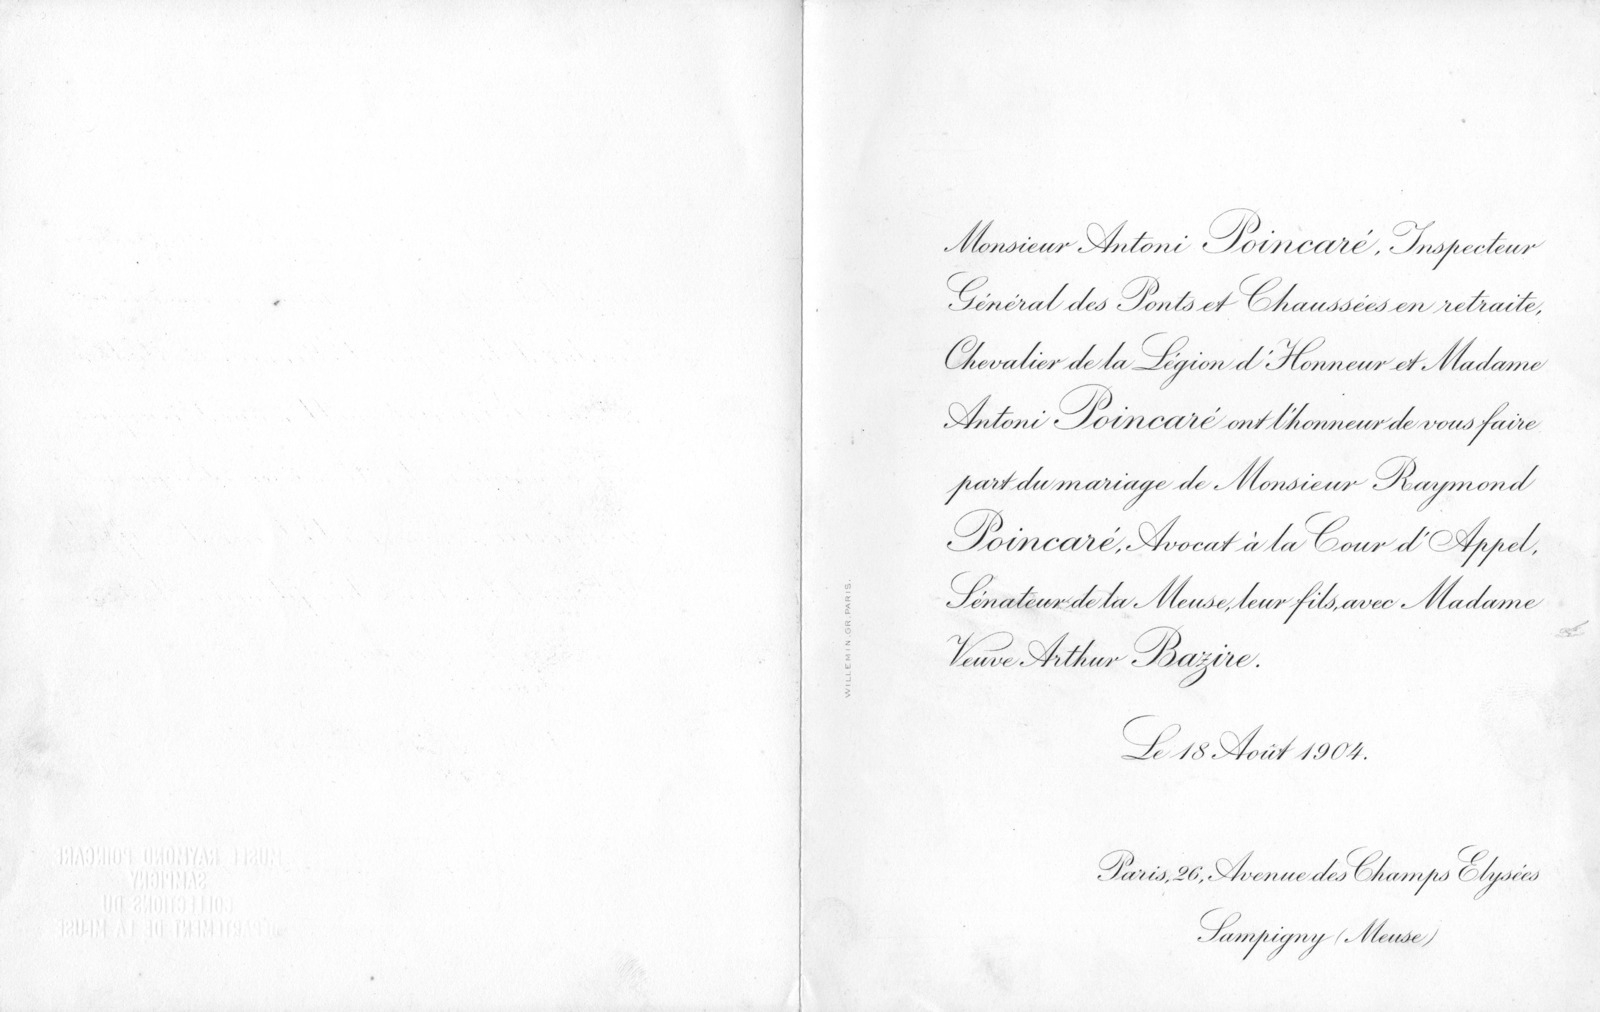 Monsieur Antoni Poincaré, Inspecteur
Général des Ponts et Chaussées en retraite,
Chevalier de la Légion d'Honneur et Madame
Antoni Poincaré ont l'honneur de vous faire
part du mariage de Monsieur Raymond
Poincaré, Avocat à la Cour d'Appel,
Sénateur de la Meuse, leur fils, avec Madame
Veuve Arthur Bazire.
Le 18 Août 1904.
Paris, 26, Avenue des Champs Elysées
Sampigny (Meuse)
WILLEMIN. GR. PARIS.
MUSEE RAYMOND POINCARE
SAMPIGNY
COLLECTIONS DU
DEPARTEMENT DE LA MEUSE